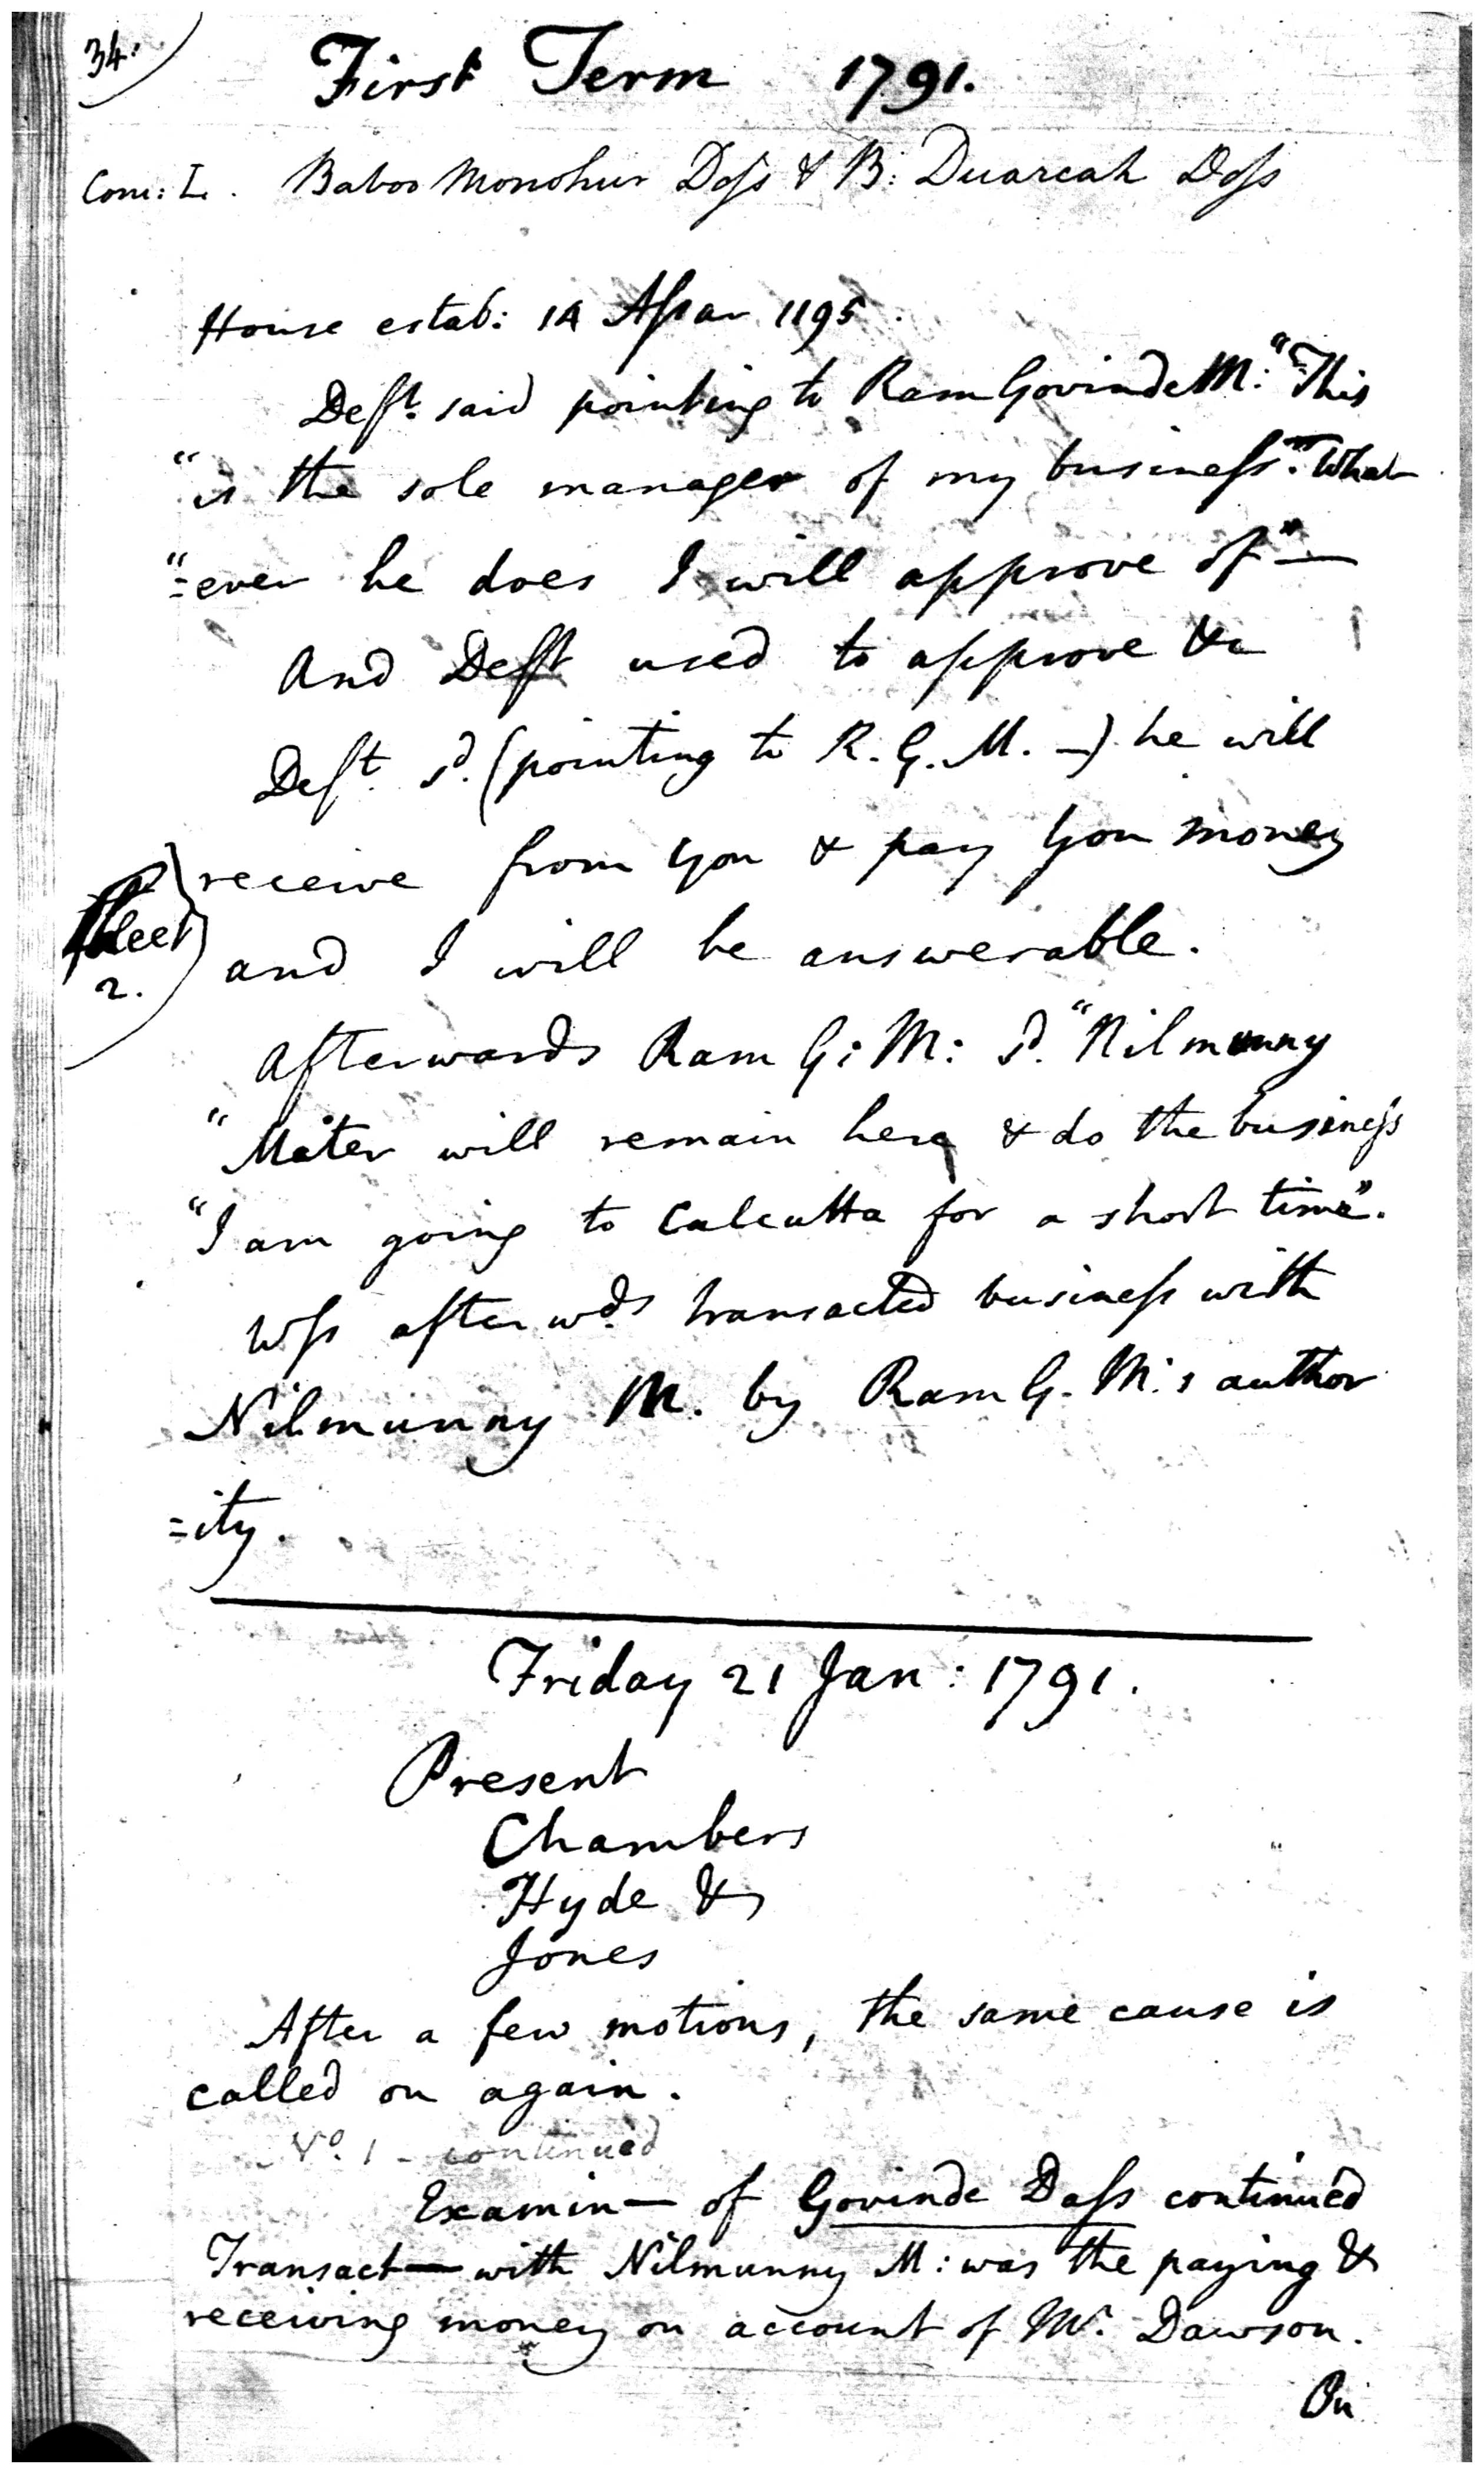 34.
First Term 1791.
Com: L. Baboo Monohur Doss & B: Duarcah Doss
House estab: 14 Assar 1195.
Deft. said pointing to Ram Govinde M: "This
"is the sole manager of my business." What
"=ever he does I will approve of"—
And Deft used to approve &c
Deft. sd. (pointing to R. G. M. —) he will
receive from you & pay you money
and I will be answerable.
2.
Afterwards Ram G: M: sd. "Nilmunny
"Miter will remain here & do the business
"I am going to Calcutta for a short time".
Wss afterwds transacted business with
Nilmunny M. by Ram G. M:s author
=ity.
Friday 21 Jan: 1791.
Present
Chambers
Hyde &
Jones
After a few motions, the same cause is
called on again.
No. 1 - continued
Examin— of Govinde Dass continued
Transact— with Nilmunny M: was the paying &
receiving money on account of Mr. Dawson.
On